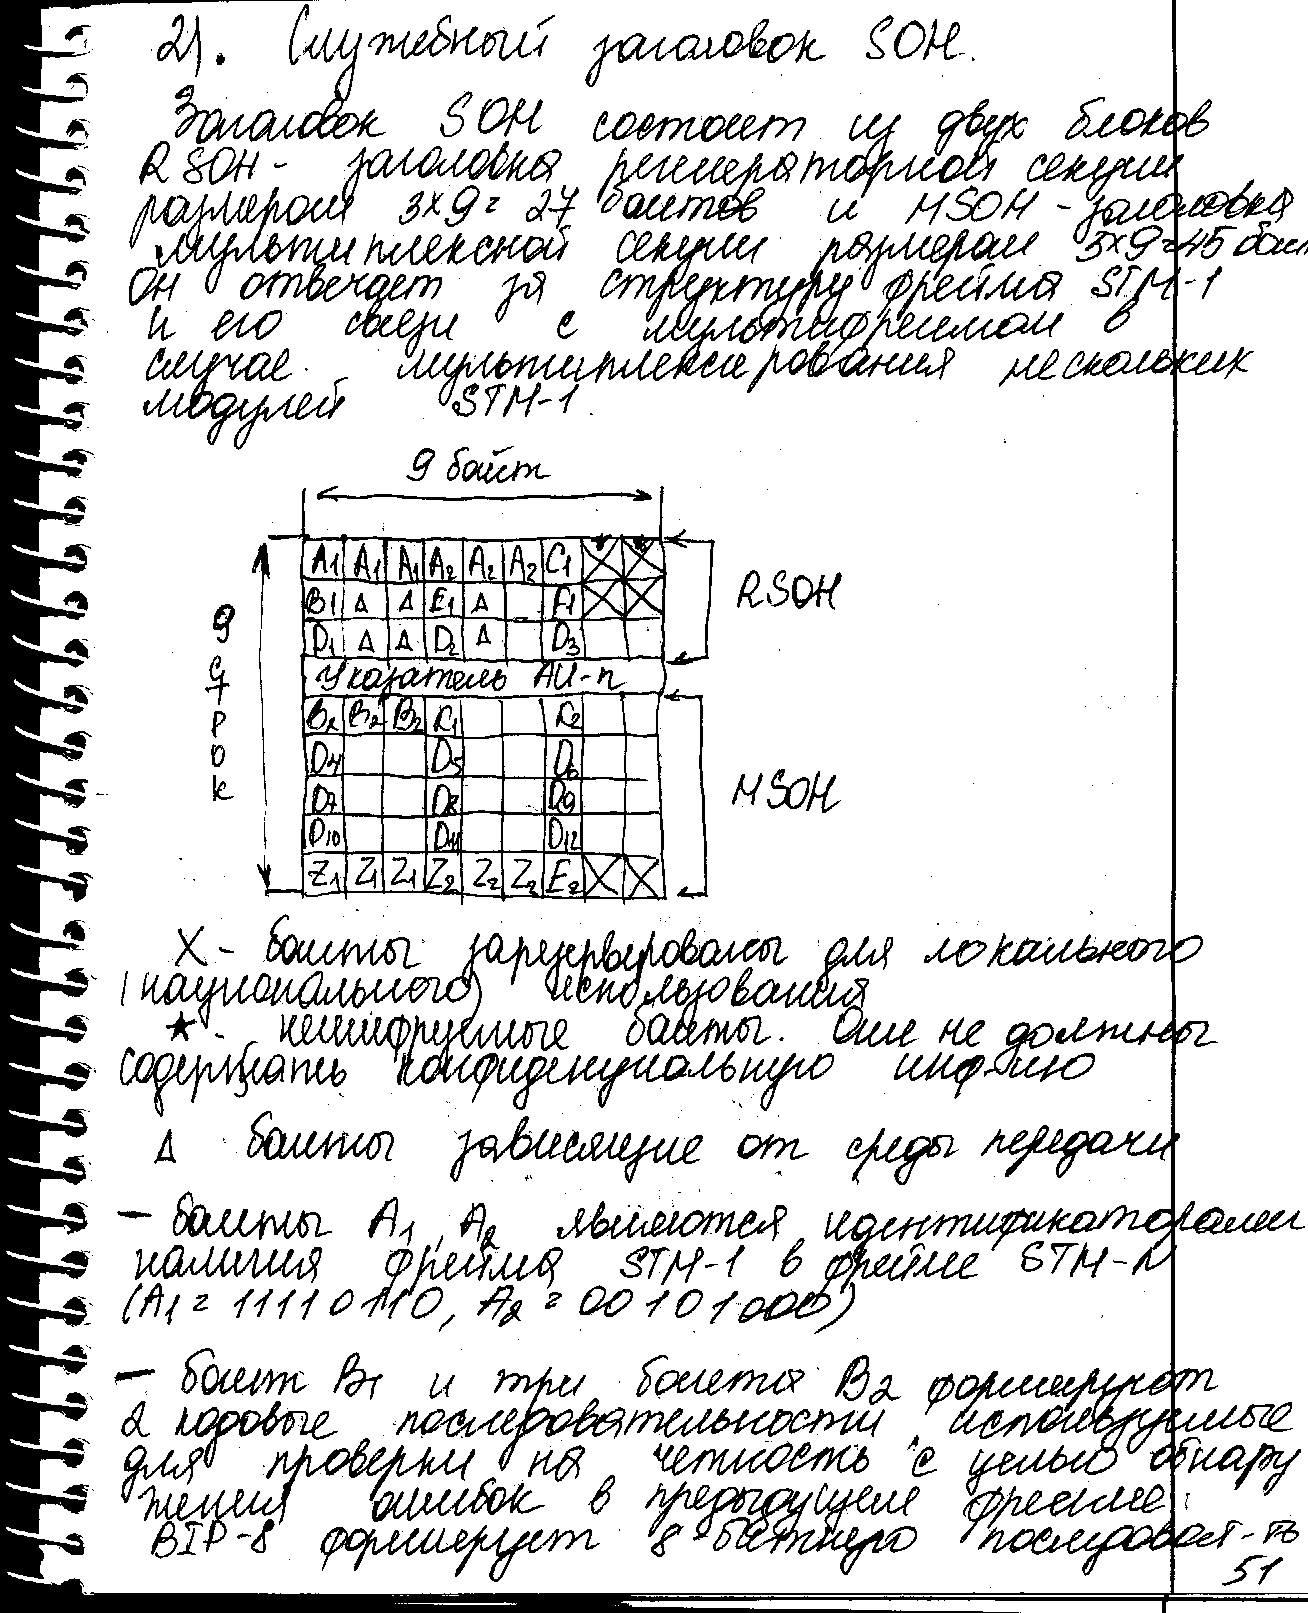 21. Служебный заголовок SOH.
Заголовок SOH состоит из двух блоков
RSOH - заголовка регенераторной секции
размером 3×9= 27 байтов и MSOH - заголовка
мультиплексной секции размером 5×9=45 байт
Он отвечает за структуру фрейма STM-1
и его связи с мультифреймом в
случае мультиплексирования нескольких
модулей STM-1.
9 байт
A1 A1 A1 A2 A2 A2 C1
B1 Δ Δ E1 Δ F1
D1 Δ Δ D2 Δ D3
RSOH
9 строк
Указатель AU-n
B2 B2 B2 K1 K2
D4 D5 D6
D7 D8 D9
MSOH
D10 D11 D12
Z1 Z1 Z1 Z2 Z2 Z2 E2 X X
X - байты зарезервированы для локального
(национального) использования
★ - нешифруемые байты. Они не должны
содержать конфиденциальную инф-цию
Δ байты зависящие от среды передачи
- байты A1, A2 являются идентификаторами
наличия фрейма STM-1 в фрейме STM-N
(A1 = 11110110, A2 = 00101000)
- байт B1 и три байта B2 формируют
2 кодовые последовательности, используемые
для проверки на четность с целью обнару
жения ошибок в предыдущем фрейме:
BIP-8 формирует 8-битную последоват-ть
51